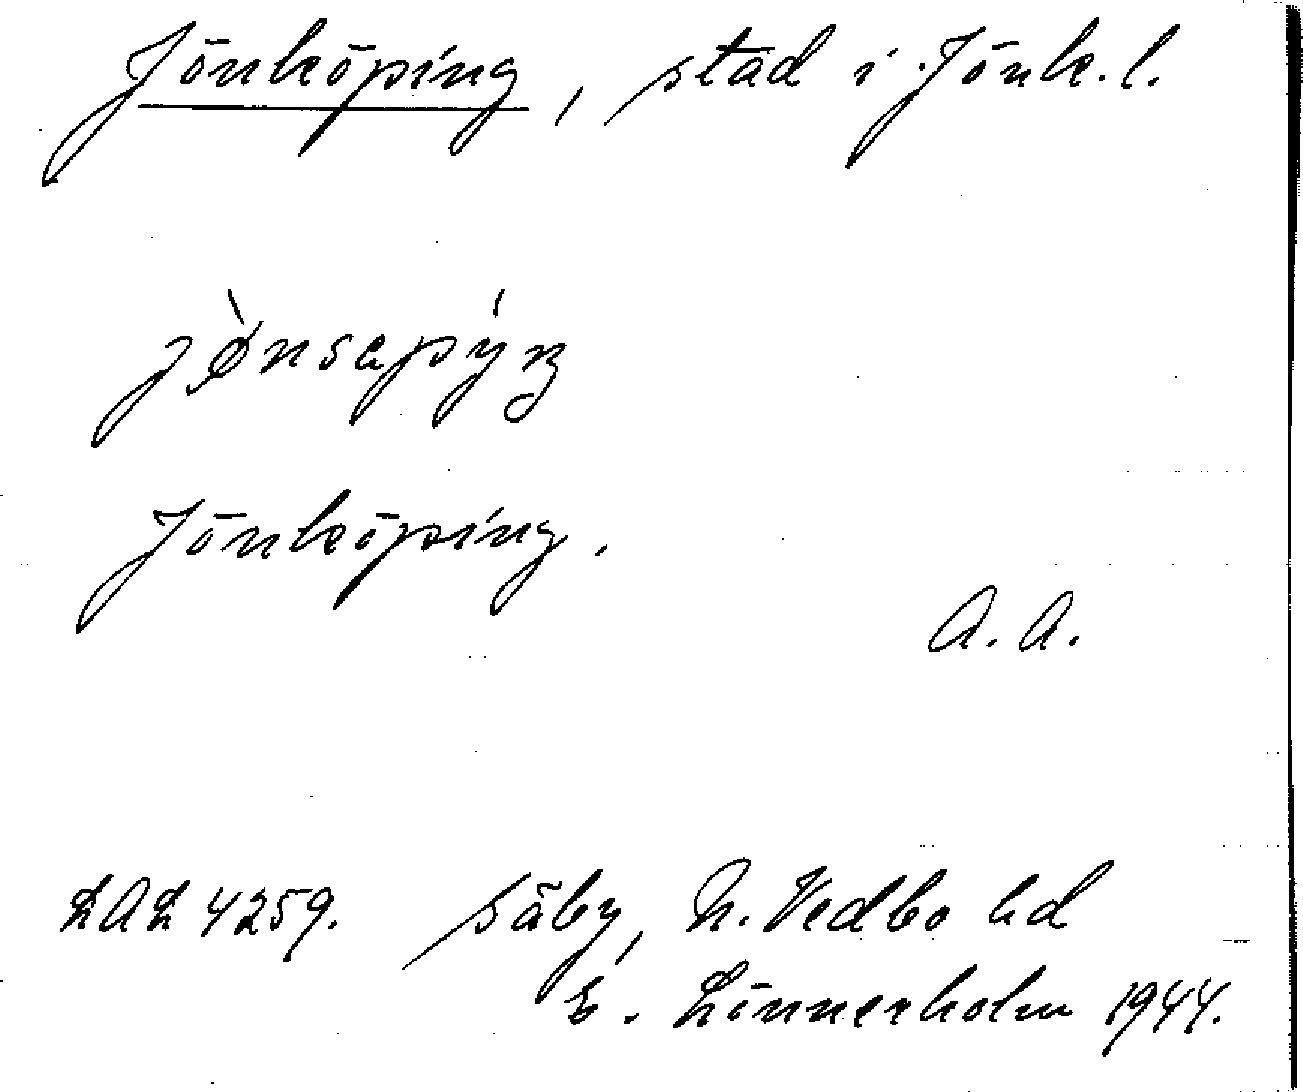 Jönköping, stad i Jönk. l.
Jönköping.
A. A.
LAL 4259. Säby, N. Vedbo hd
E. Linnerholm 1944.